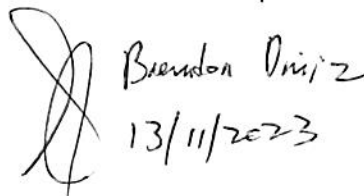 Brendon Diniz
13/11/2023